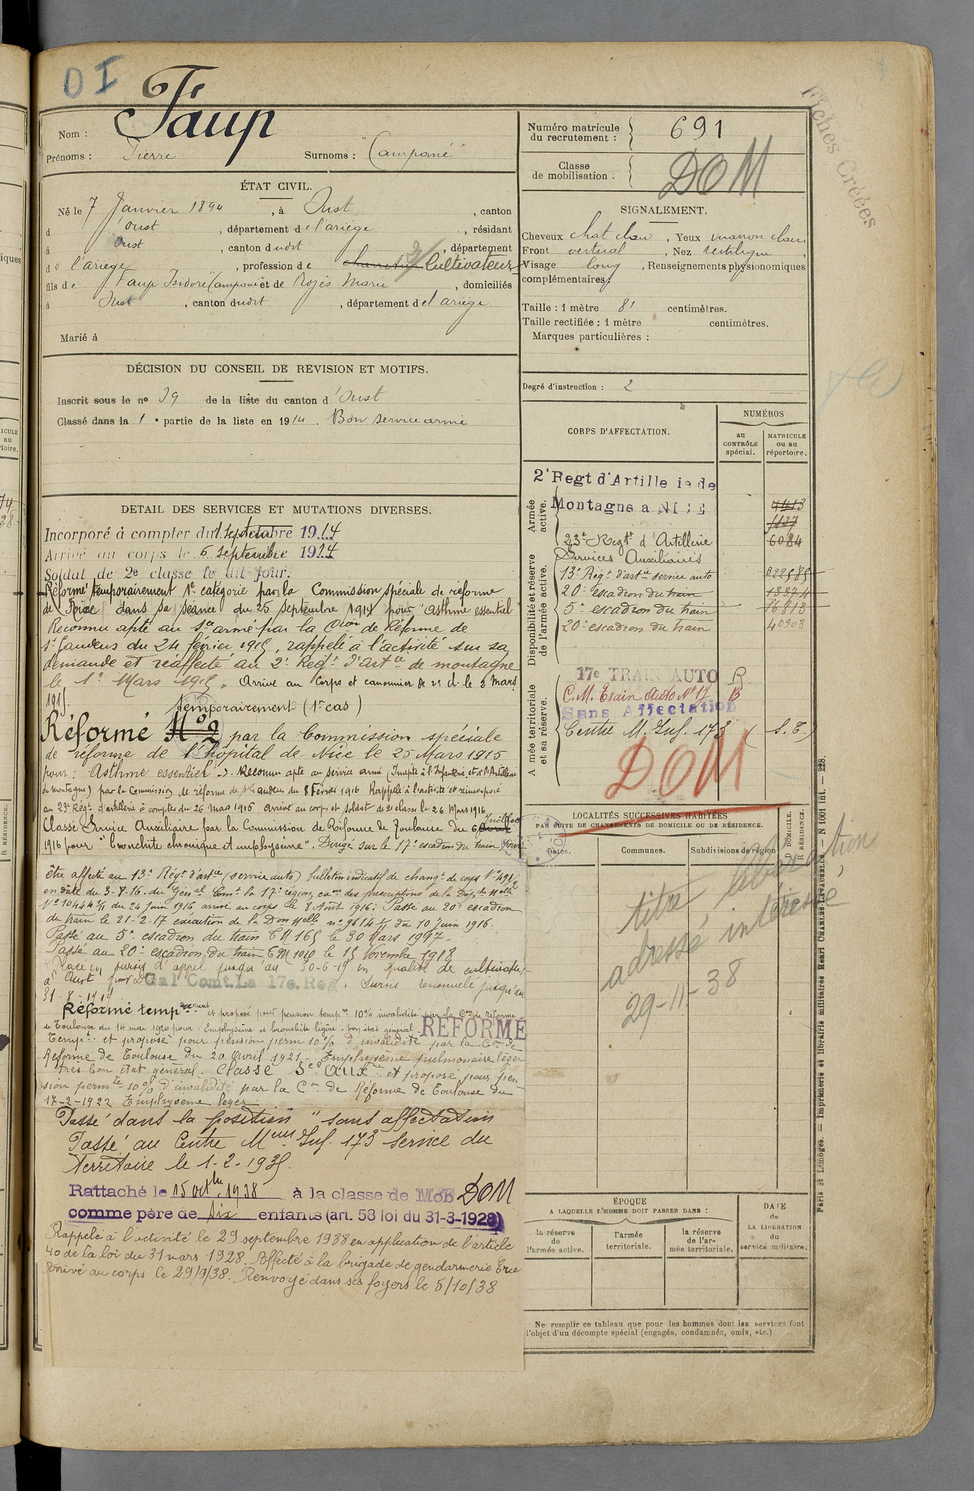 D I
Fiches Créées
Nom : Faup
Prénoms : Pierre Surnoms : "Campané"
ÉTAT CIVIL.
Né le 7 Janvier 1894, à Oust, canton
d'Oust, département de l'ariège, résidant
à Oust, canton dudit, département
de l'ariège, profession de Cultivateur
fils de Faup Isidore Campané et de Rogès Marie, domiciliés
à Oust, canton dudit, département de l'ariège
Marié à
DÉCISION DU CONSEIL DE REVISION ET MOTIFS.
Inscrit sous le no 39 de la liste du canton d'Oust
Classé dans la 1e partie de la liste en 1914. Bon service armé
DETAIL DES SERVICES ET MUTATIONS DIVERSES.
Incorporé à compter du 1 septembre 1914
Arrivé au corps le 6 septembre 1914
Soldat de 2e classe le dit jour.
Réformé temporairement 1e catégorie par la Commission spéciale de réforme
de dans sa séance du 25 septembre 1914 pour "asthme essentiel"
Reconnu apte au sce armé par la Con de Réforme de
St Gaudens du 24 février 1915, rappelé à l'activité sur sa
demande et réaffecté au 2e Regt d'Artie de montagne
le 1er Mars 1915. Arrivé au Corps et canonnier de 2e cl. le 3 mars
1915.
temporairement (1er cas)
Réformé No 2 par la Commission spéciale
de réforme de l'hôpital de Nice le 25 Mars 1915
pour : Asthme essentiel. Reconnu apte au service armé (Inapte à l'Infanterie et à l'Artillerie
de montagne) par la Commission de réforme de St Gaudens du 8 Février 1916 Rappelé à l'activité et
au 23e Regt d'artillerie à compter du 26 mars 1916 arrivé au corps et soldat de 2e classe le 26 Mars 1916
Classé Service Auxiliaire par la Commission de Réforme de Toulouse du 6 Juillet
1916 pour "bronchite chronique et emphysème". Dirigé sur le 17e escadron du Train pour
être affecté au 13e Regt d'artie (service auto) bulletin indicatif de changt de corps
en date du 3-8-16. du Génal Comt la 17e région, des prescriptions de la Dép. Mlle
No 10444 3/3 du 24 Juin 1916 arrivé au corps le 8 Août 1916. Passé au 20e escadron
du train le 21-2-17 exécution de la Don Mlle no 9614 du 10 juin 1916.
Passé au 5e escadron du train le 30 Mars 1917.
Passé au 20e escadron du train le 15 Novembre 1918
Placé en sursis d'appel jusqu'au 30-6-19 en qualité de cultivateur
à Oust Gal Comt. La 17e. Rég. Sursis renouvelé jusqu'au
31-8-1919
Réformé tempt et proposé pour pension tempre 10% invalidité par la Con de réforme
de Toulouse du 14 mai 1920 pour : Emphysème et bronchite légère - bon état général REFORMÉ
Tempt et proposé pour pension perm 10% d'invalidité par la Con de
Réforme de Toulouse du 20 Avril 1921. Emphysème pulmonaire léger
très bon état général. Classé Sce Auxre et proposé pour pen-
sion permte 10% d'invalidité par la Con de Réforme de Toulouse du
17-2-1922 Emphysème léger
Passé dans la position "sans affectation
Passé au Centre Meur Inf. 173 Service du
Territoire le 1-2-1935.
Rattaché le 15 octbre 1938 à la classe de MoB DOM
comme père de six enfants (art. 58 loi du 31-3-1928)
Rappelé à l'activité le 29 septembre 1938 en application de l'article
40 de la loi du 31 mars 1928. Affecté à la brigade de gendarmerie
Arrivé au corps le 29/9/38. Renvoyé dans ses foyers le 5/10/38
Numéro matricule du recrutement : 691
Classe de mobilisation : DOM
SIGNALEMENT.
Cheveux chat clair, Yeux marron clair
Front vertical, Nez rectiligne
Visage long, Renseignements physionomiques
complémentaires :
Taille : 1 mètre 81 centimètres.
Taille rectifiée : 1 mètre centimètres.
Marques particulières :
Degré d'instruction : 2
CORPS D'AFFECTATION.
NUMÉROS
au CONTRÔLE spécial.
MATRICULE ou au répertoire.
Armée active.
2e Regt d'Artillerie de
Montagne a NICE
23e Regt d'Artillerie 6084
Disponibilité et réserve de l'armée active.
Services Auxiliaires
13e Regt d'artie service auto
20e escadron du train
5e escadron du train
20e escadron du train 40903
Armée territoriale et sa réserve.
17e TRAIN AUTO R
C.M. Train Auto No 17 B
Sans Affectation
Centre M. Inf. 173 (S.T.)
DOM
LOCALITÉS SUCCESSIVES HABITÉES
PAR SUITE DE CHANGEMENTS DE DOMICILE OU DE RÉSIDENCE.
Dates.
Communes.
Subdivisions de région
DOMICILE. RÉSIDENCE.
titre libération
adressé intéressé
29-11-38
ÉPOQUE
A LAQUELLE L'HOMME DOIT PASSER DANS :
la réserve de l'armée active.
l'armée territoriale.
la réserve de l'armée territoriale.
DATE de LA LIBÉRATION du service militaire.
Ne remplir ce tableau que pour les hommes dont les services font
l'objet d'un décompte spécial (engagés, condamnés, omis, etc.)
Paris et Limoges. — Imprimerie et librairie militaires Henri CHARLES-LAVAUZELLE — N 1001 int. — 228.